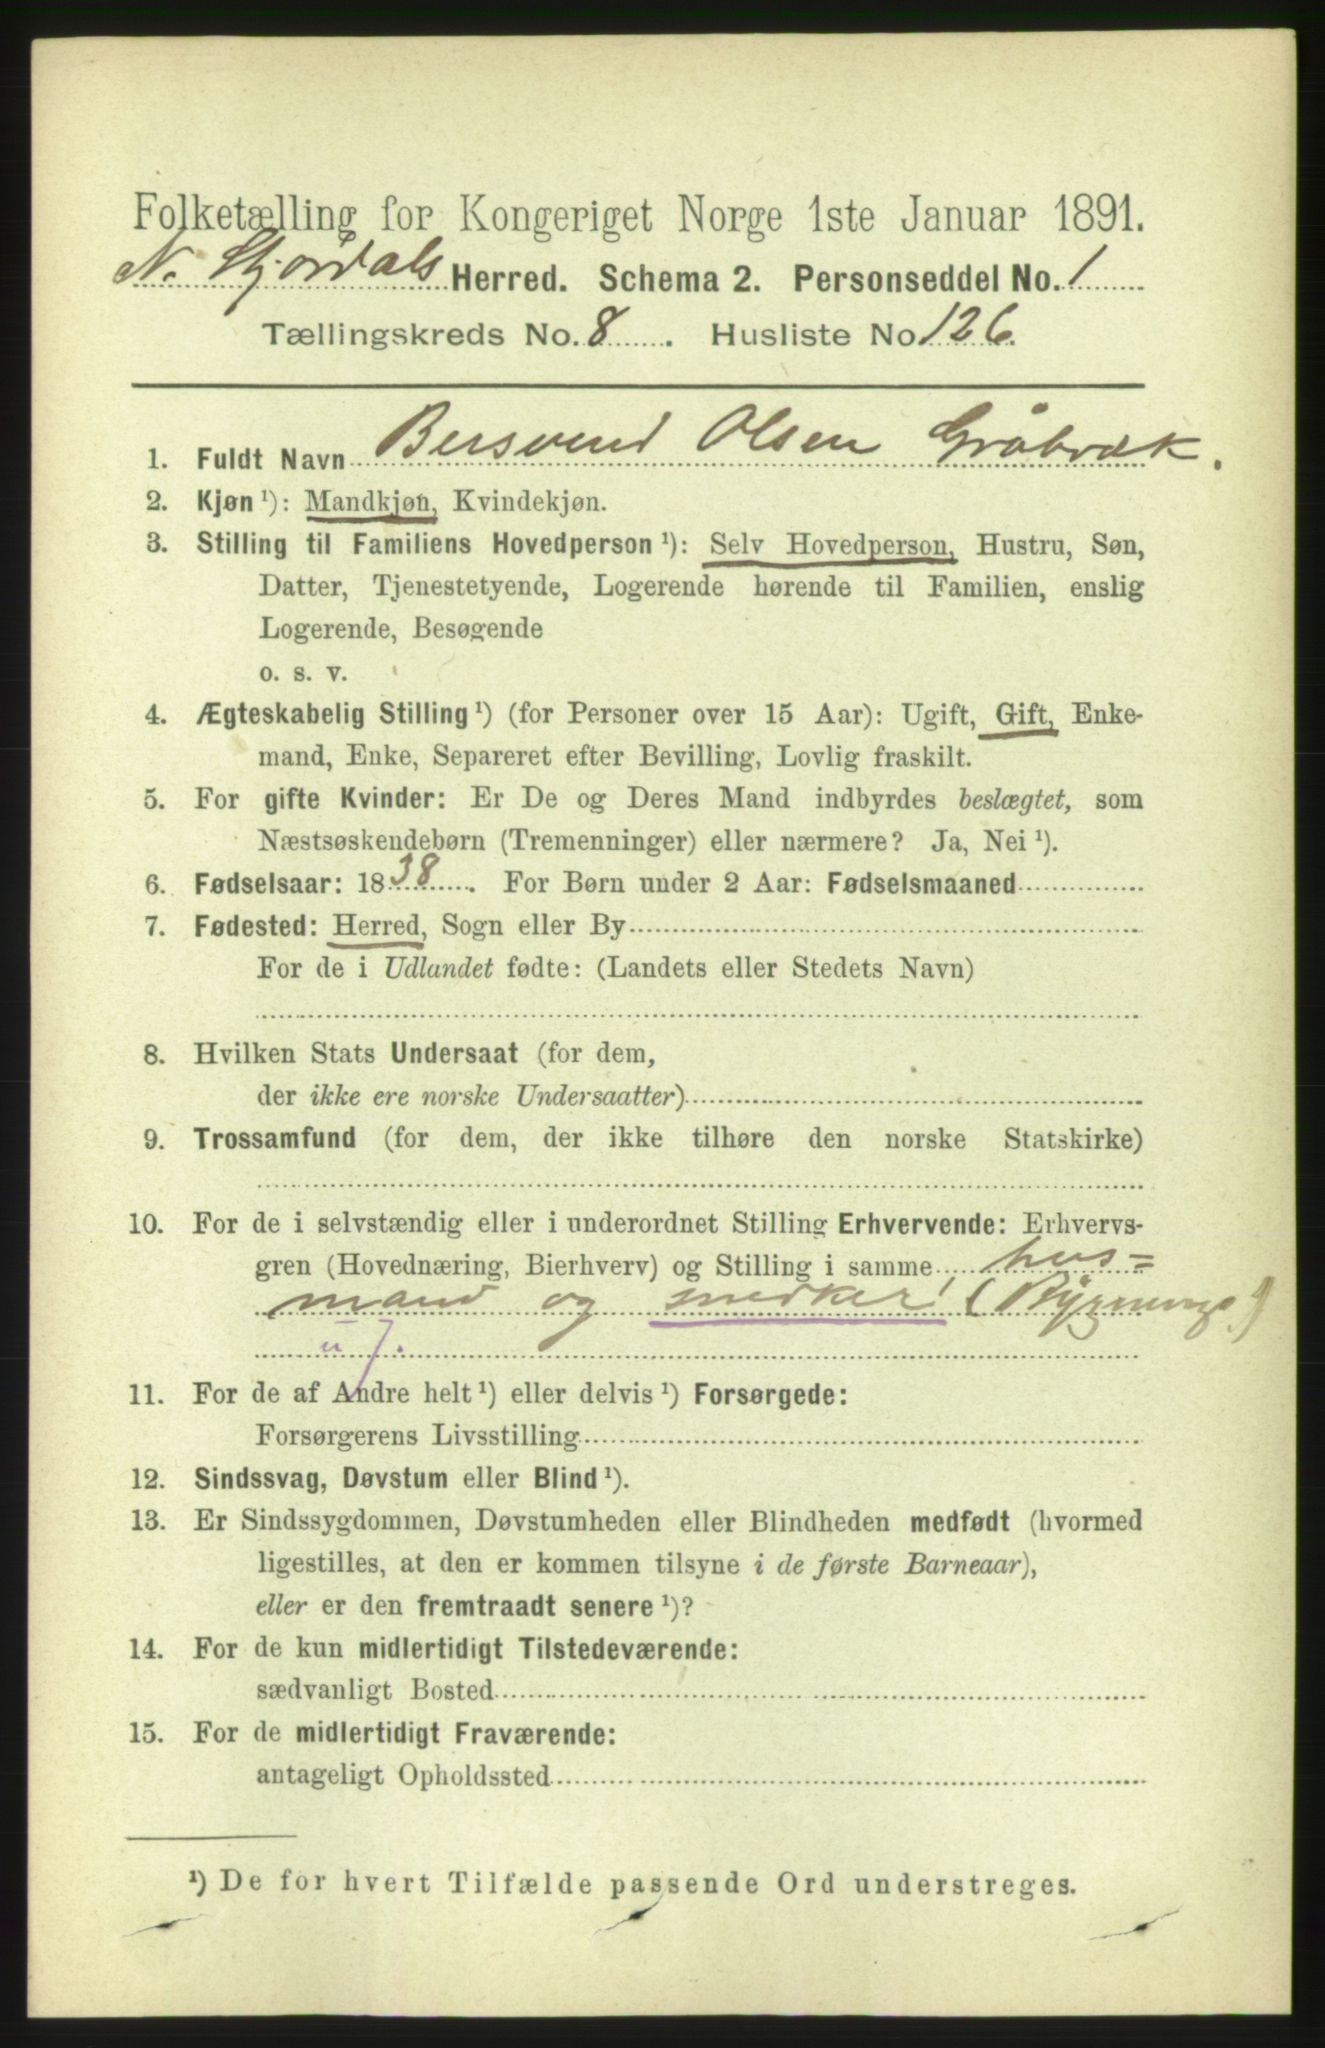 Folketælling for Kongeriget Norge 1ste Januar 1891.
N. Stjørdals Herred. Schema 2. Personseddel No. 1
Tællingskreds No. 8. Husliste No 126.
1. Fuldt Navn Bersvend Olsen Gråbræk.
2. Kjøn ¹): Mandkjøn, Kvindekjøn.
3. Stilling til Familiens Hovedperson ¹): Selv Hovedperson, Hustru, Søn,
Datter, Tjenestetyende, Logerende hørende til Familien, enslig
Logerende, Besøgende
o. s. v.
4. Ægteskabelig Stilling ¹) (for Personer over 15 Aar): Ugift, Gift, Enke-
mand, Enke, Separeret efter Bevilling, Lovlig fraskilt.
5. For gifte Kvinder: Er De og Deres Mand indbyrdes beslægtet, som
Næstsøskendebørn (Tremenninger) eller nærmere? Ja, Nei ¹).
6. Fødselsaar: 1838. For Børn under 2 Aar: Fødselsmaaned
7. Fødested: Herred, Sogn eller By
For de i Udlandet fødte: (Landets eller Stedets Navn)
8. Hvilken Stats Undersaat (for dem,
der ikke ere norske Undersaatter)
9. Trossamfund (for dem, der ikke tilhøre den norske Statskirke)
10. For de i selvstændig eller i underordnet Stilling Erhvervende: Erhvervs-
gren (Hovednæring, Bierhverv) og Stilling i samme hus=
mand og snedker (Bygnings)
11. For de af Andre helt ¹) eller delvis ¹) Forsørgede:
Forsørgerens Livsstilling
12. Sindssvag, Døvstum eller Blind ¹).
13. Er Sindssygdommen, Døvstumheden eller Blindheden medfødt (hvormed
ligestilles, at den er kommen tilsyne i de første Barneaar),
eller er den fremtraadt senere ¹)?
14. For de kun midlertidigt Tilstedeværende:
sædvanligt Bosted
15. For de midlertidigt Fraværende:
antageligt Opholdssted
¹) De for hvert Tilfælde passende Ord understreges.